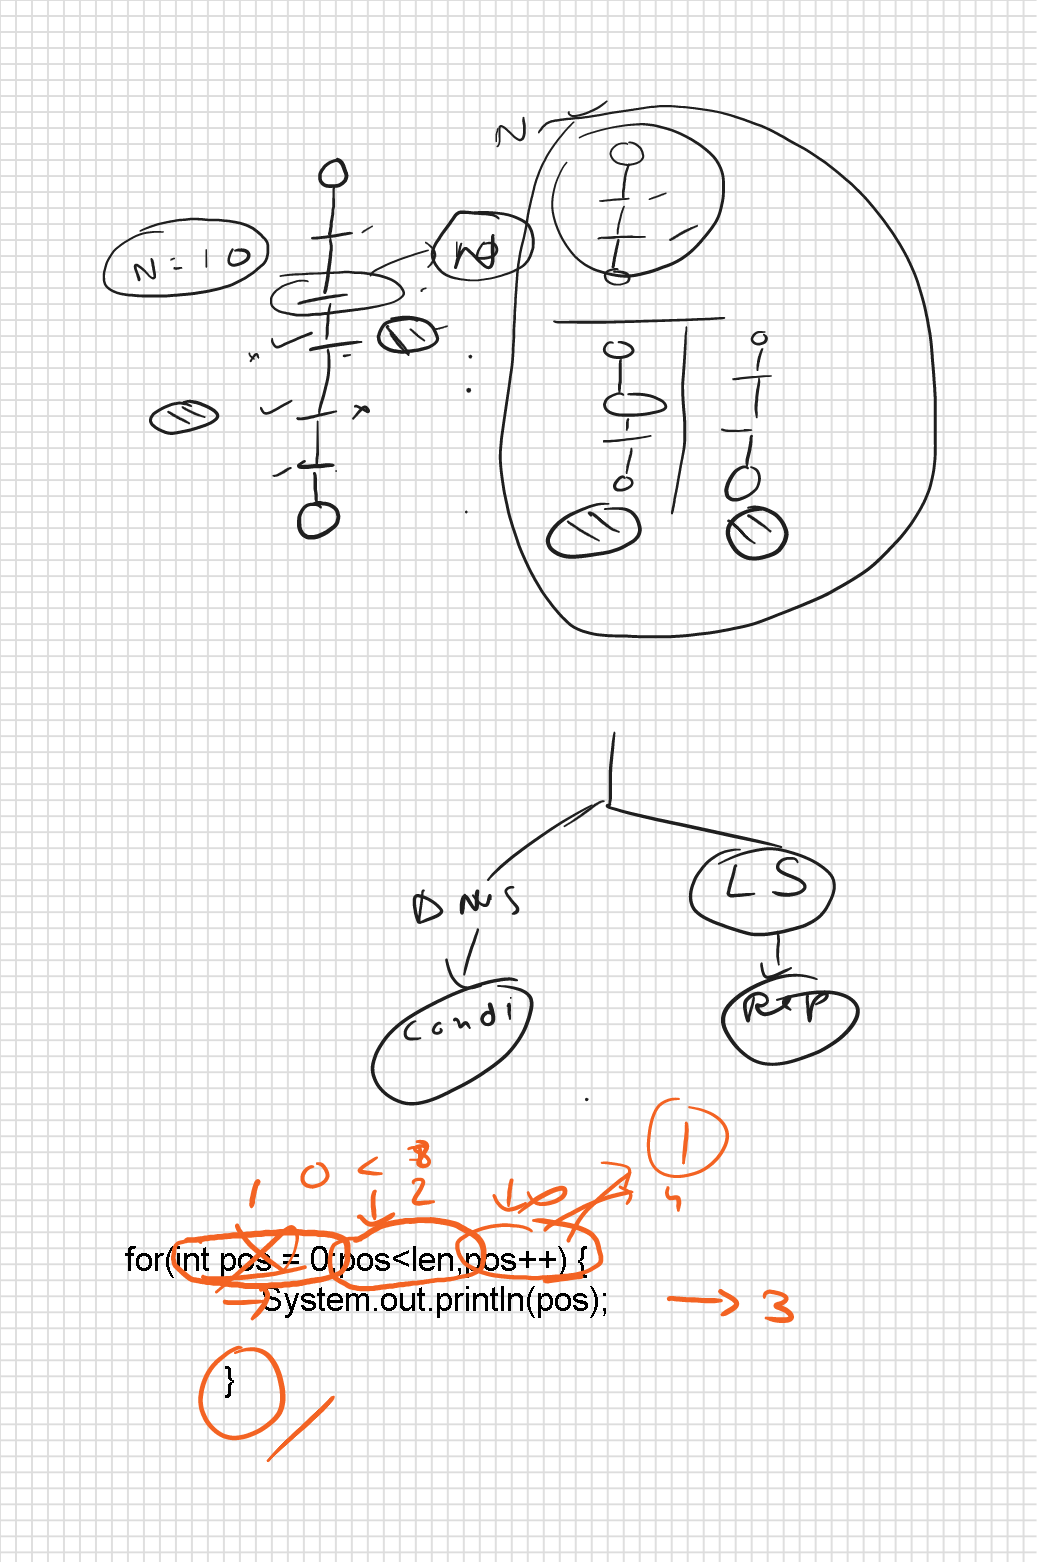 N
N = 10
LS
Condi
1
0 < 8
2
4
for(int pos = 0;pos<len,pos++) {
System.out.println(pos);
3
}